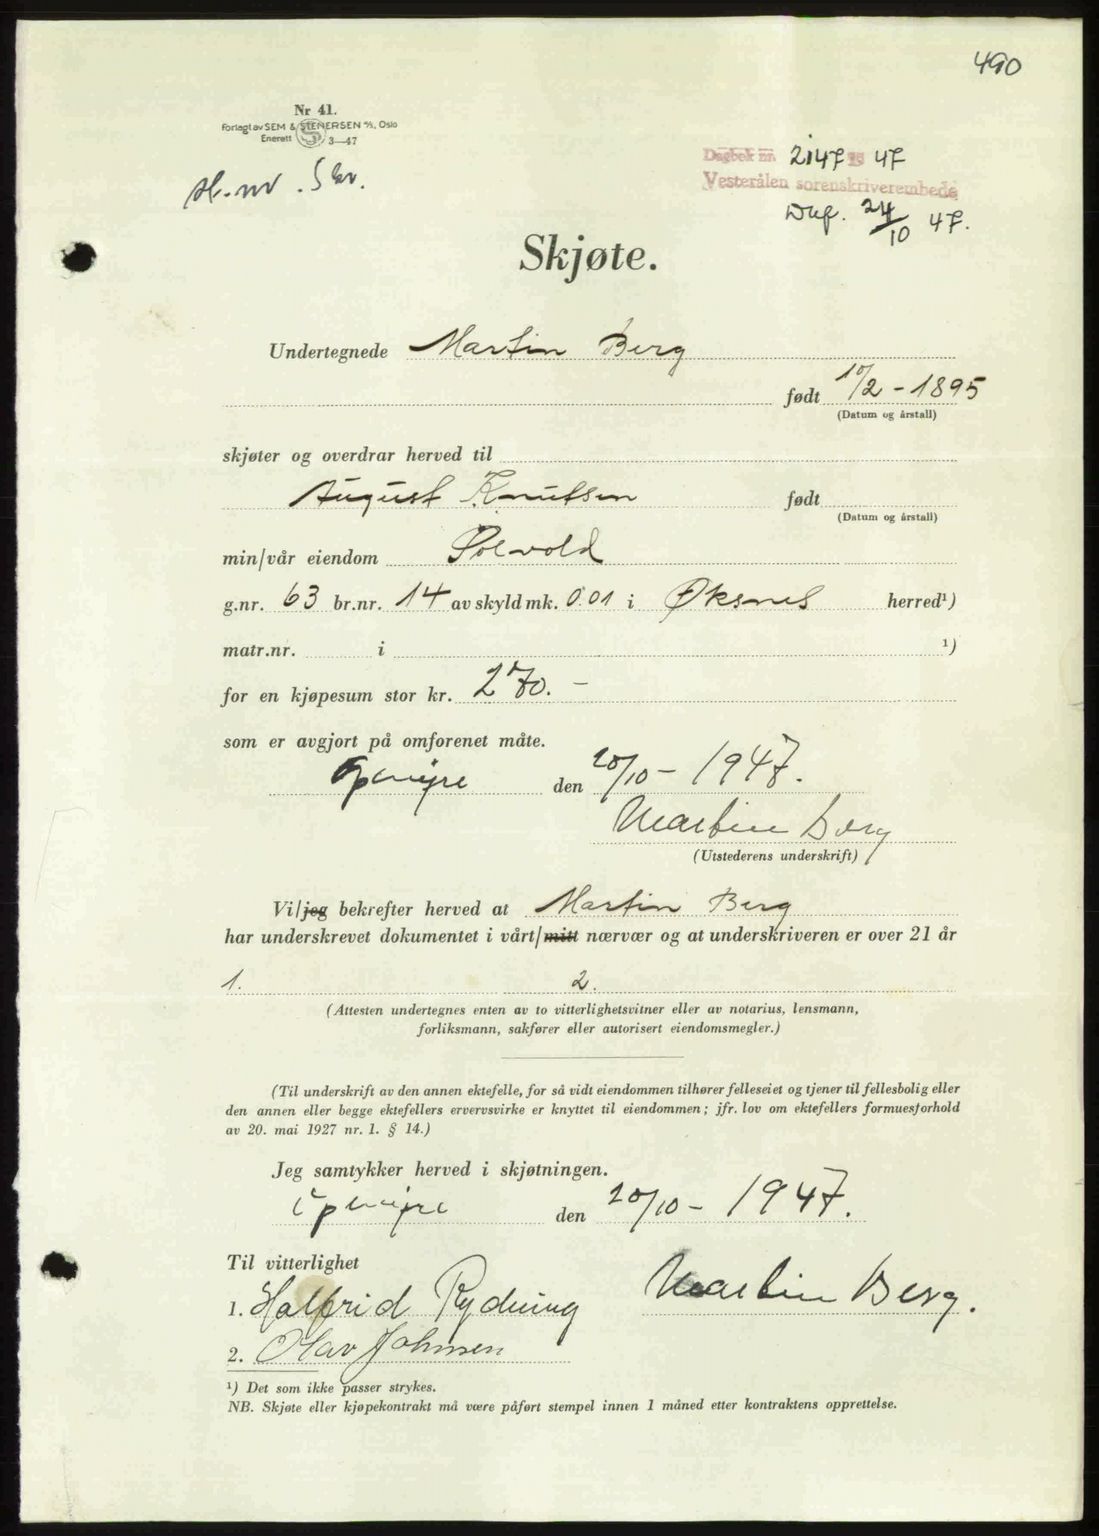 490
Nr 41.
Forlagt av SEM & STENERSEN A/S, Oslo
Enerett 3—47
St.mv. 5 kr.
Dagbok nr. 2147 19 47
Vesterålen sorenskriverembede
24/10 47.
Skjøte.
Undertegnede Martin Berg
født 10/2 - 1895
(Datum og årstall)
skjøter og overdrar herved til
August Knutsen født
(Datum og årstall)
min/vår eiendom Solvold
g.nr. 63 br.nr. 14 av skyld mk. 0.01 i Øksnes herred¹)
matr.nr. i ¹)
for en kjøpesum stor kr. 270. –
som er avgjort på omforenet måte.
den 20/10 – 1947.
Martin Berg
(Utstederens underskrift)
Vi/jeg bekrefter herved at Martin Berg
har underskrevet dokumentet i vårt/mitt nærvær og at underskriveren er over 21 år
1. 2.
(Attesten undertegnes enten av to vitterlighetsvitner eller av notarius, lensmann,
forliksmann, sakfører eller autorisert eiendomsmegler.)
(Til underskrift av den annen ektefelle, for så vidt eiendommen tilhører felleseiet og tjener til fellesbolig eller
den annen eller begge ektefellers ervervsvirke er knyttet til eiendommen; jfr. lov om ektefellers formuesforhold
av 20. mai 1927 nr. 1. § 14.)
Jeg samtykker herved i skjøtningen.
den 20/10 – 1947.
Til vitterlighet
Martin Berg.
1. Halfrid Rydning
2. Olav Johnsen
¹) Det som ikke passer strykes.
NB. Skjøte eller kjøpekontrakt må være påført stempel innen 1 måned etter kontraktens opprettelse.